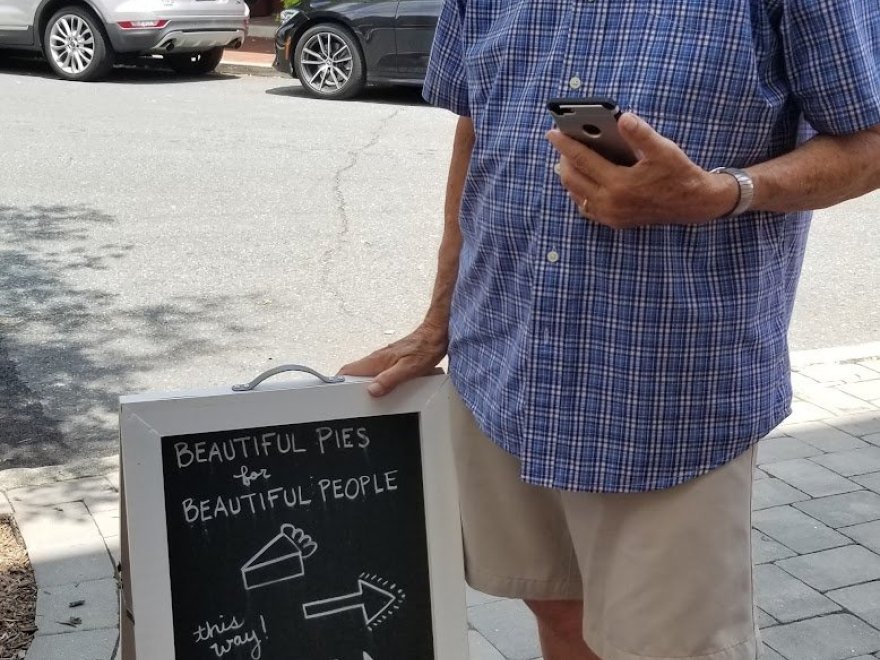 BEAUTIFUL PIES
for
BEAUTIFUL PEOPLE
this
way!